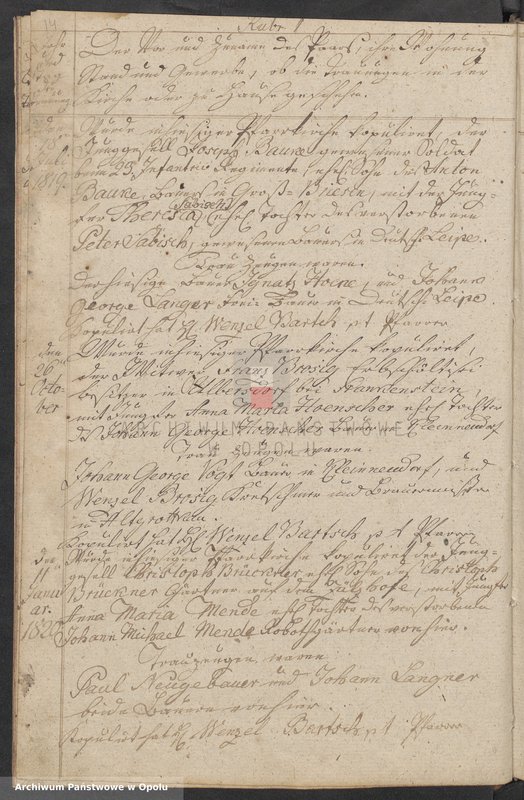 14
Rubr. 1
Der Vor und Zuname des Paars, ihre Wohnung
Stand und Gewerbe, ob die Trauungen in der
Kirche oder zu Hause geschehen.
Wurde in hiesiger Pfarrkirche kopuliret, der
Junggesell Joseph Bauke gewesener Soldat
beim 23 Infanterie Regimente, ehel. Sohn des Anton
1819
Bauke, Bauer in Groß-Briesen, mit der Jung-
fer Theresia (Sabisch) ehel. Tochter des verstorbenen
Peter Sabisch, gewesenen Bauers in Deutsch Leipe.
Trau Zeugen waren.
Der hiesige Bauer Ignatz Hoene, und Johann
George Langer Frei Bauer in Deutsch Leipe.
Kopulirt hat Wenzel Bartsch p t Pfarrer
den
26
Octo
ber
Wurde in hiesiger Pfarrkirche kopuliret,
der Witwer Franz Brosig Erbscholtisei
besitzer in Olbersdorf bei Frankenstein,
mit Jungfer Anna Maria Hoenscher ehel. Tochter
d. Johann George Hoenscher Bauer in Kleinnendorf
Trau Zeugen waren.
Johann George Vogt Bauer in Kleinnendorf, und
Wenzel Brosig Kretschmer und Brauermeister
in Altgrottkau.
Kopulirt hat Wenzel Bartsch p t Pfarrer
den
11
Janu
ar.
1820
Wurde in hiesiger Pfarrkirche kopuliret der Jung-
gesell Christoph Brückner ehel. Sohn des Christoph
Brückner Gärtner auf dem Hofe, mit Jungfer
Anna Maria Mende ehel. Tochter des verstorbenen
Johann Michael Mende Robothgärtner von hier.
Trauzeugen waren
Paul Neugebauer und Johann Langner
beide Bauern von hier.
Kopulirt hat Wenzel Bartsch p t Pfarrer
ARCHIWUM PAŃSTWOWE
W OPOLU
Archiwum Państwowe w Opolu